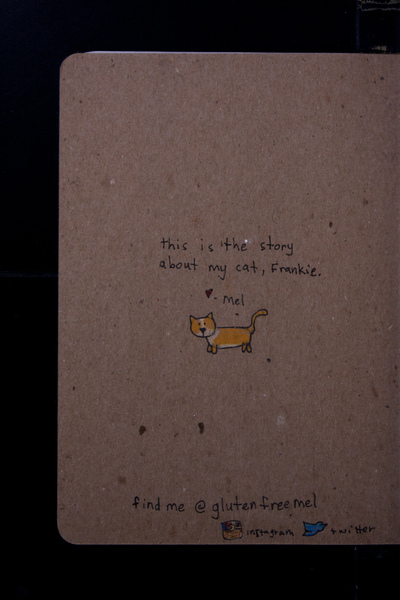 this is the story
about my cat, Frankie.
♥ mel
find me @glutenfreemel
instagram twitter